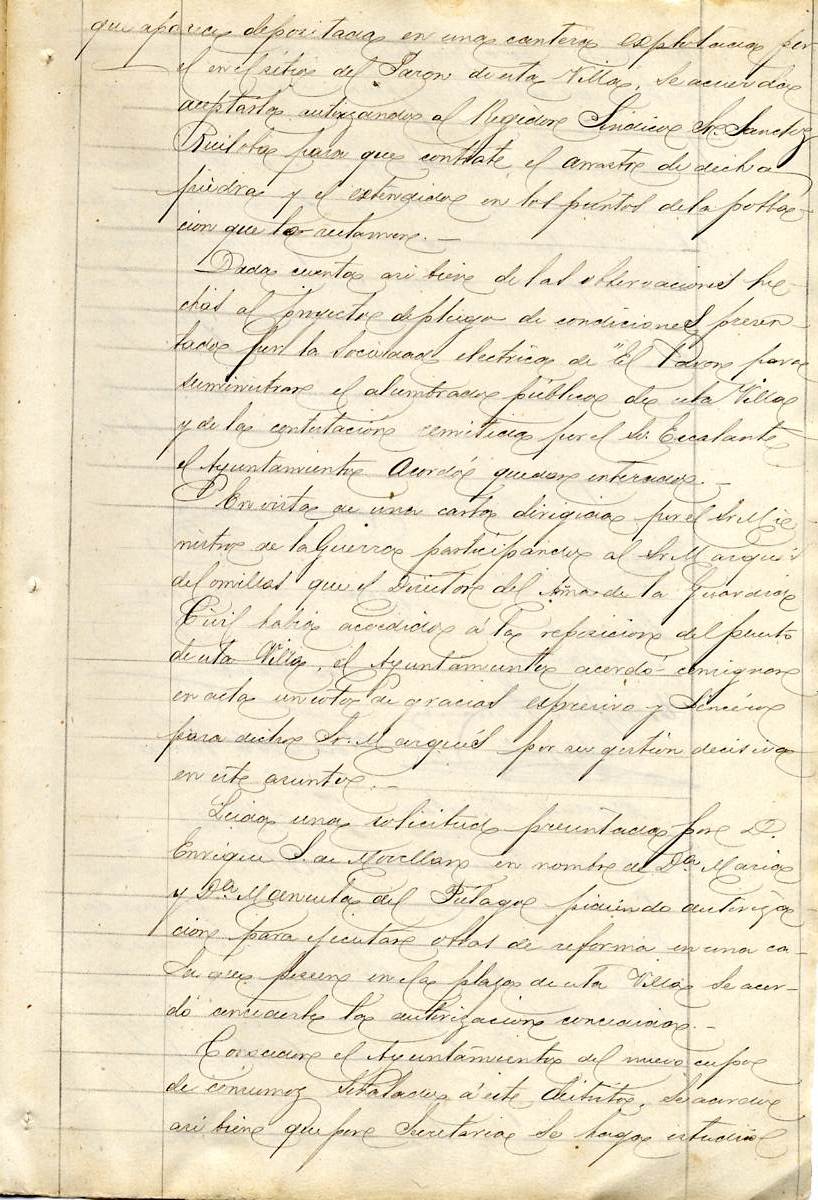 que aparece depositada en una cantera explotada por
el en el sitio del Paron de esta Villa, se acuerda
aceptarla autorizando al Regidor Sindico Sr. Sanchez
Ruiloba para que contrate el arrastre de dicha
piedra y el extendido en los puntos de la pobla-
cion que lo reclamen.-
Dada cuenta asi bien de las observaciones he-
chas al proyecto de pliego de condiciones presen-
tado por la Sociedad electrica de "El Paron para
suministrar el alumbrado público de esta Villa
y de la contestación remitida por el Sr. Escalante
el Ayuntamiento Acordó quedar enterado.-
En vista de una carta dirigida por el Sr Mi-
nistro de la Guerra participando al Sr Marqués
de Comillas que el Director del Arma de la Guardia
Civil habia accedido á la reposicion del puesto
de esta Villa, el Ayuntamiento acordó consignar
en acta un voto de gracias expresivo y Sincero
para dicho Sr. Marqués por su gestión decisiva
en este asunto.-
Leida una solicitud presentada por D.
Enrique S. de Movellan en nombre de Dª Maria
y Dª Manuela del Piélago pidiendo autoriza
cion para ejecutar obras de reforma en una ca-
sa que poseen en la plaza de esta Villa se acor-
dó concederle la autorizacion concedida.-
Consedor el Ayuntamiento del nuevo cupo
de consumoz Señalado á este distrito, se acuerda
asi bien que por Secretaria se haga estudio